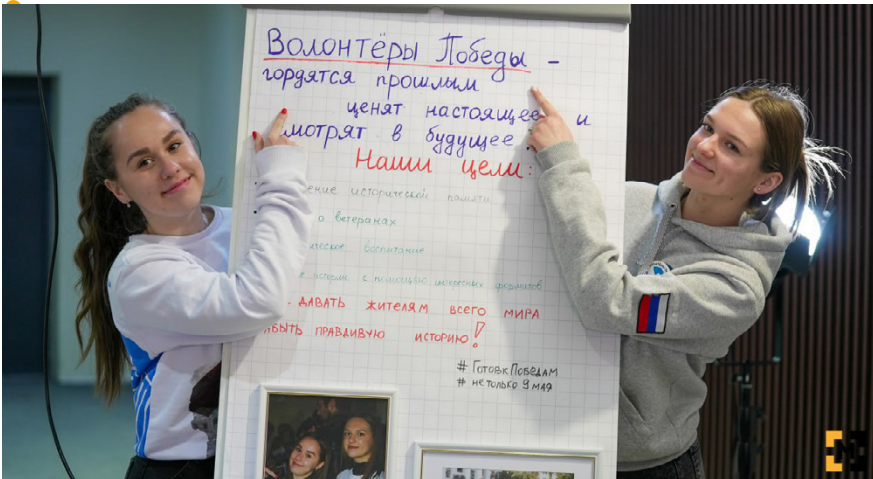 Волонтёры Победы -
гордятся прошлым
ценят настоящее и
мотрят в будущее!
Наши цели:
ение исторической памяти
о ветеранах
ическое воспитание
е истории с помощью интересных форматов
ДАВАТЬ ЖИТЕЛЯМ ВСЕГО МИРА
АБЫТЬ ПРАВДИВУЮ ИСТОРИЮ!
# ГотовкПобедам
# нетолько9мая